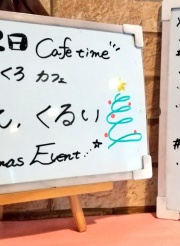 日 Cafe time
くろ カフェ
くるい
mas Event